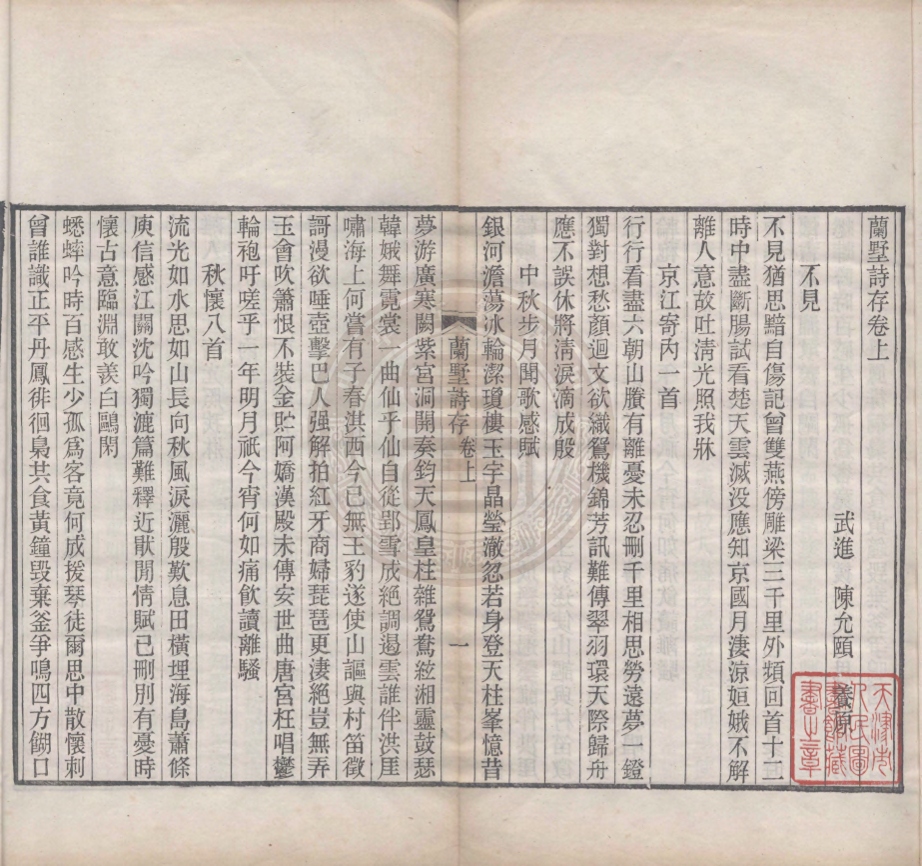 蘭墅詩存卷上
武進　陳允頤　養原
不見
不見猶思黯自傷記曾雙燕傍雕梁三千里外頻回首十二
時中盡斷腸試看楚天雲滅没應知京國月淒涼姮娥不解
離人意故吐清光照我牀
京江寄內一首
行行看盡六朝山賸有離憂未忍刪千里相思勞遠夢一鐙
獨對想愁顏迴文欲織鴛機錦芳訊難傳翠羽環天際歸舟
應不誤休將清淚滴成殷
中秋步月聞歌感賦
銀河澹蕩冰輪潔瓊樓玉宇晶瑩澈忽若身登天柱峯憶昔
蘭墅詩存　卷上　一
夢游廣寒闕紫宮洞開奏鈞天鳳皇柱雜鴛鴦絃湘靈鼓瑟
韓娥舞霓裳一曲仙乎仙自從郢雪成絕調遏雲誰伴洪厓
嘯海上何嘗有子春淇西今已無王豹遂使山謳與村笛徵
謌漫欲唾壺擊巴人强解拍紅牙商婦琵琶更淒絕豈無弄
玉會吹簫恨不裝金貯阿嬌漢殿未傳安世曲唐宮枉唱鬱
輪袍吁嗟乎一年明月祇今宵何如痛飲讀離騷
秋懷八首
流光如水思如山長向秋風淚灑殷歎息田橫埋海島蕭條
庾信感江關沈吟獨漉篇難釋近猒閒情賦已刪別有憂時
懷古意臨淵敢羨白鷗閑
蟋蟀吟時百感生少孤爲客竟何成援琴徒爾思中散懷刺
曾誰識正平丹鳳徘徊梟共食黃鐘毀棄釜爭鳴四方餬口
天津市
人民圖
書館藏
書之章